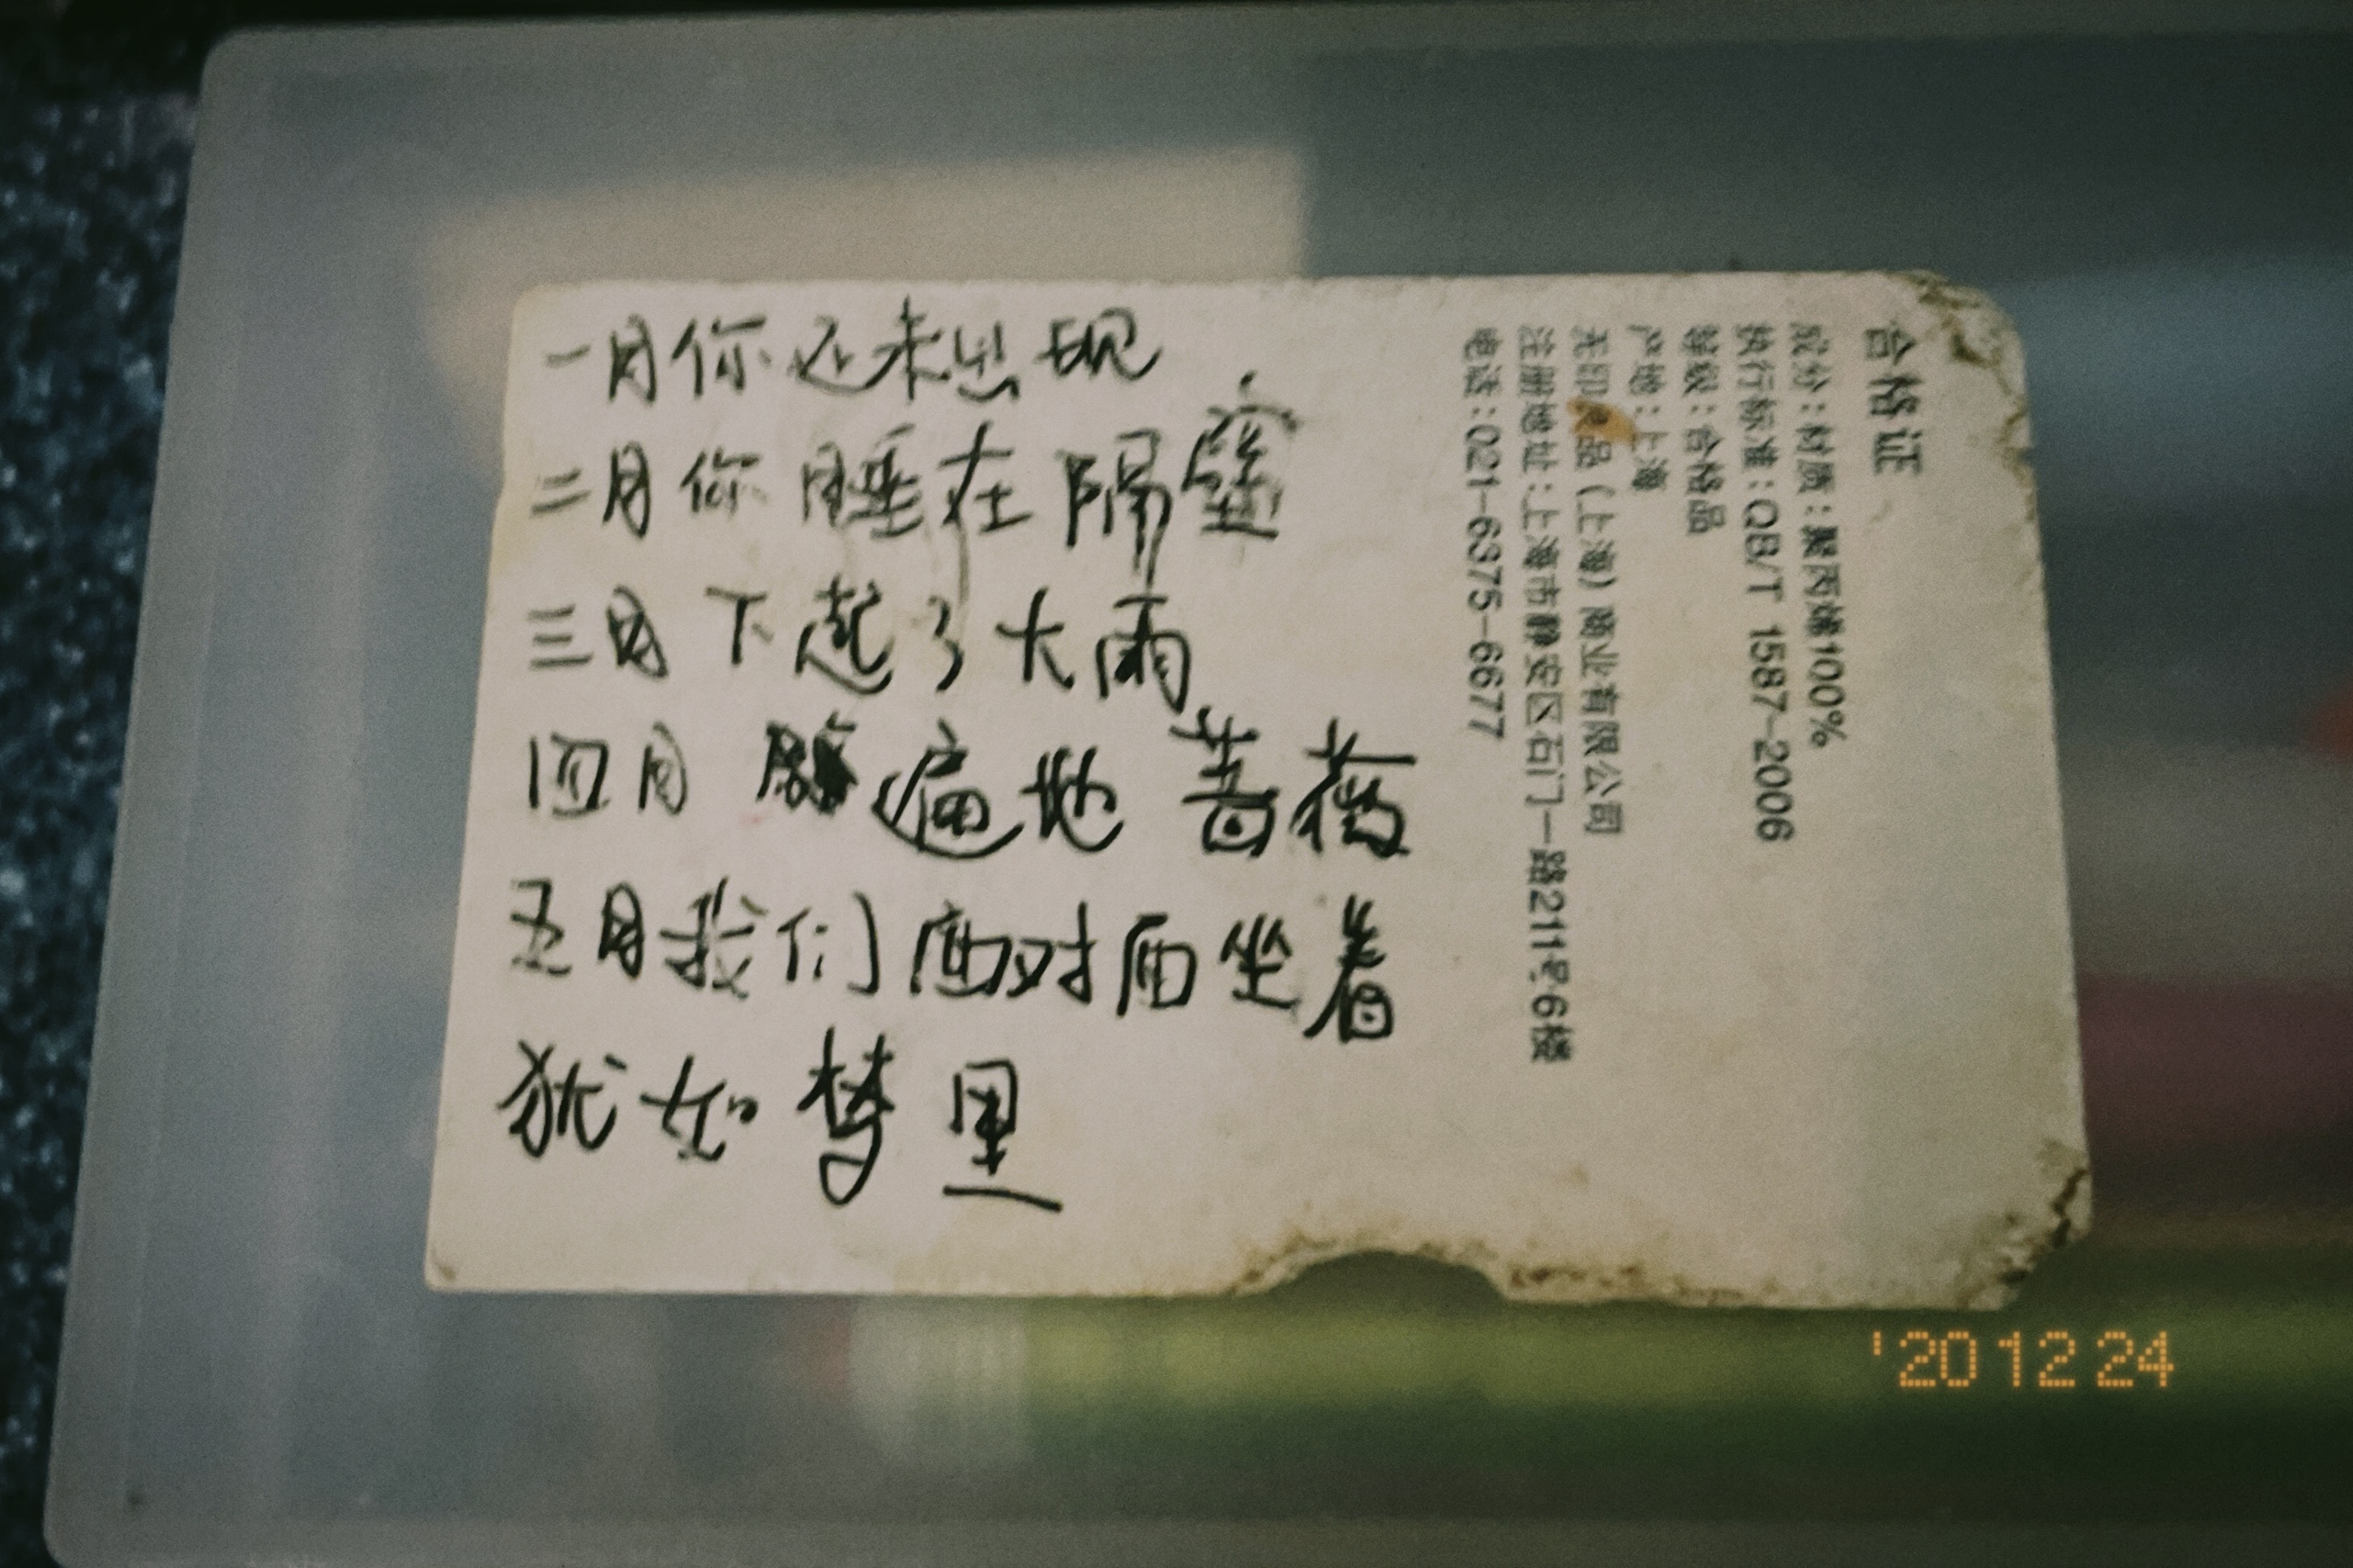 一月你还未出现
二月你睡在隔壁
三月下起了大雨
四月 遍地蔷薇
五月我们面对面坐着
犹如梦里
合格证
成分:材质:聚丙烯100%
执行标准:QB/T 1587-2006
等级:合格品
产地:上海
无印良品(上海)商业有限公司
注册地址:上海市静安区石门一路211号6楼
电话:021-6375-6677
'20 12 24